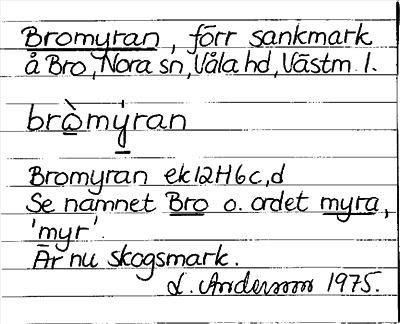 Bromyran, förr sankmark
å Bro, Nora sn, Våla hd, Västm. l.
bròmýran
Bromyran ek 12H6c,d
Se namnet Bro o. ordet myra,
'myr'.
Är nu skogsmark.
L. Andersson 1975.